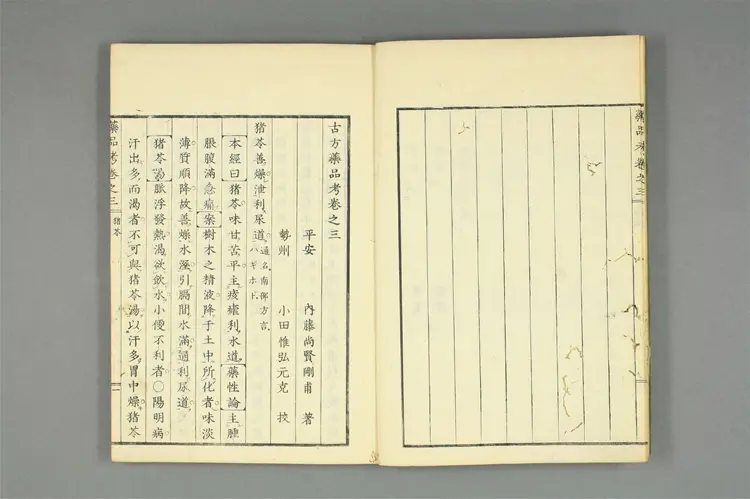 藥品考卷之三
古方藥品考卷之三
平安 內藤尚賢剛甫 著
勢州 小田惟弘元克 校
猪苓善燥泄利尿道 通名南部方言ハギホド
本經曰猪苓味甘苦平主痎瘧利水道藥性論主腫
脹腹滿急痛案樹木之精液降于土中所化者味淡
薄質順降故善燥水溼引膈間水滿通利尿道
猪苓湯脈浮發熱渴欲飲水小便不利者○陽明病
汗出多而渴者不可與猪苓湯以汗多胃中燥猪苓
藥品考卷之三 猪苓 一